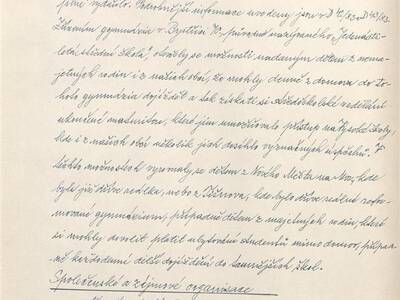 plně vydařilo. Podrobnější informace uvedeny jsou v D 42/83 a D 43/83.
Zřízením gymnázia v Bystřici n/P, původně nazývaného "Jedenácti-
letá střední škola", otevřely se možnosti nadaným dětem z nema-
jetných rodin i z našich obcí, že mohly denně z domova do to-
hoto gymnázia dojíždět a tak získati si středoškolské vzdělání
ukončené maturitou, které jim umožňovalo přístup na vysoké školy,
kde i z našich obcí několik jich dosáhlo význačných úspěchů. V
těchto možnostech vyrovnaly se dětem z Nového Města na Mor., kde
byla již dříve reálka, nebo z Tišnova, kde bylo dříve reálné refor-
mované gymnázium, případně dětem z majetných rodin, které
si mohly dovolit platit ubytování studentů mimo domov, přípa-
ně každodenní delší dojíždění do tamnějších škol.
Společenské a zájmové organizace